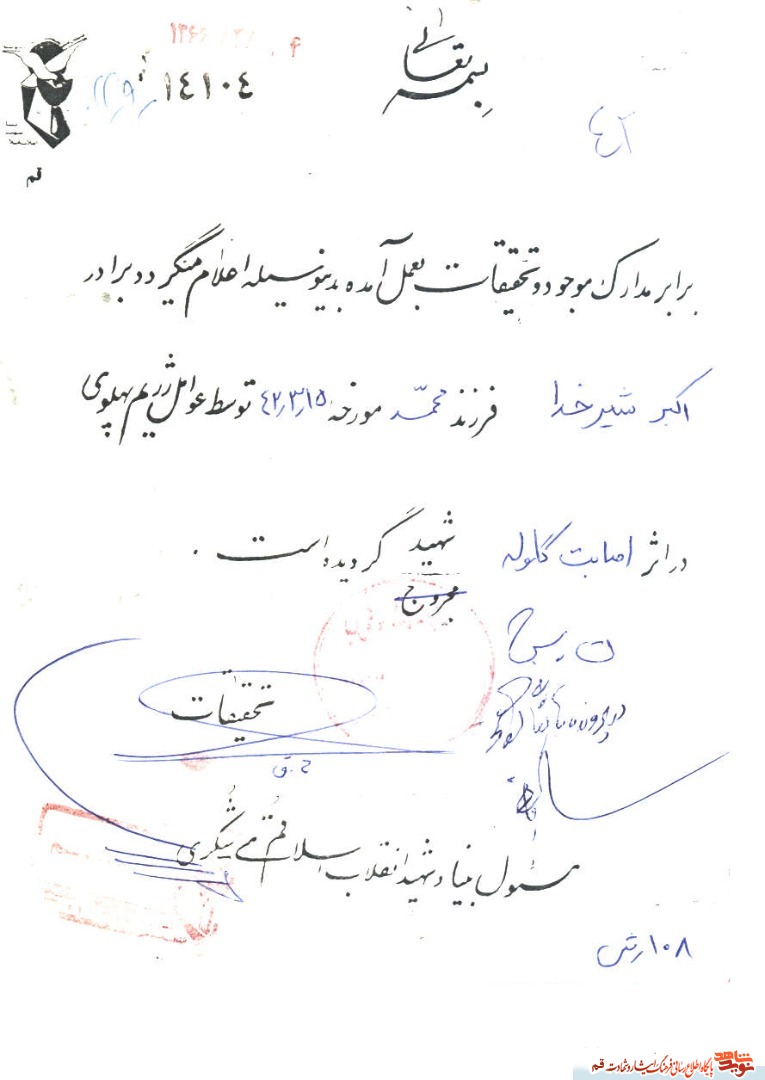 بسمه تعالی
۱۴۱۰۴
۴۲
قم
برابر مدارک موجود و تحقیقات بعمل آمده بدینوسیله اعلام میگردد برادر
اکبر شیرخدا فرزند محمد مورخه ۴۲٫۳٫۱۵ توسط عوامل رژیم پهلوی
در اثر اصابت گلوله شهید گردیده است .
مجروح
تحقیقات
ح.ق
مسئول بنیاد شهید انقلاب اسلامی قم
۱۰۸
نوید شاهد
پایگاه اطلاع رسانی فرهنگ ایثار و شهادت قم